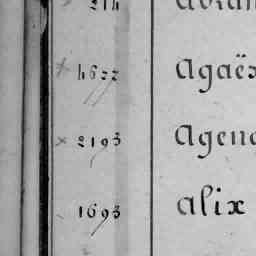 × h622 Agaës
× 2193 Ageno
1693 Alix